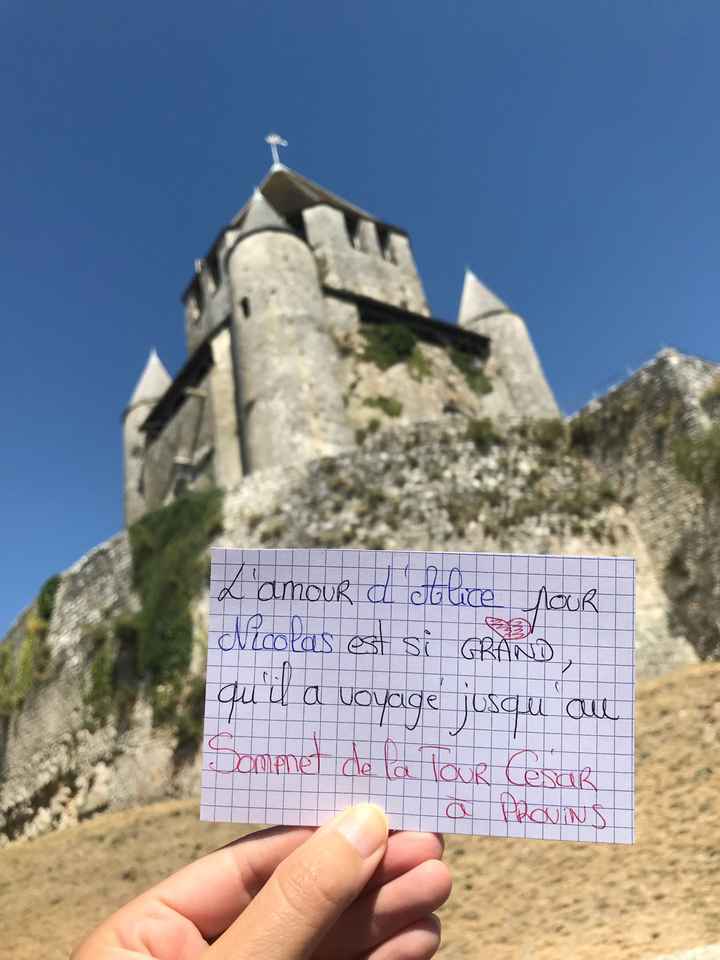 L'amour d'Alice pour
Nicolas est si GRAND,
qu'il a voyagé jusqu'au
Sommet de la Tour César
à PROVINS